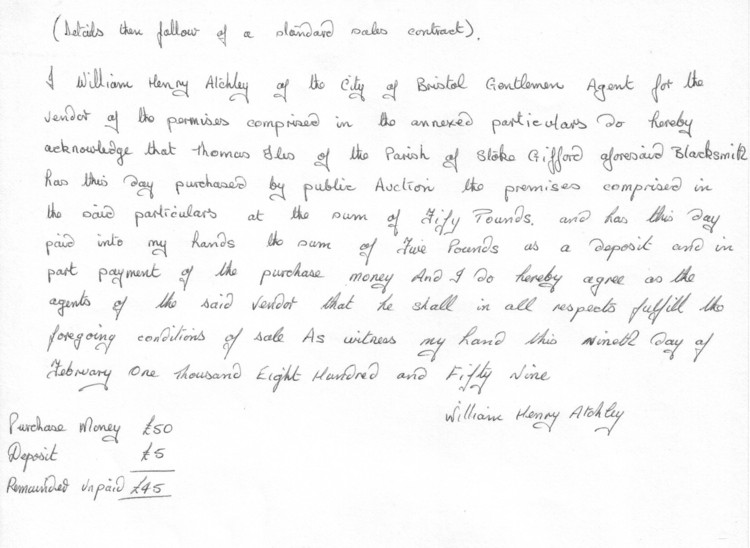 (Details then follow of a standard sales contract).
I William Henry Atchley of the City of Bristol Gentlemen Agent for the
vendor of the permises comprised in the annexed particulars do hereby
acknowledge that Thomas Iles of the Parish of Stoke Gifford aforesaid Blacksmith
has this day purchased by public Auction the premises comprised in
the said particulars at the sum of Fify Pounds. and has this day
paid into my hands the sum of Five Pounds as a deposit and in
part payment of the purchase money And I do hereby agree as the
agents of the said vendor that he shall in all respects fulfill the
foregoing conditions of sale As witness my hand this nineth day of
February One Thousand Eight Hundred and Fifty Nine
William Henry Atchley
Purchase Money £50
Deposit £5
Remainded unpaid £45